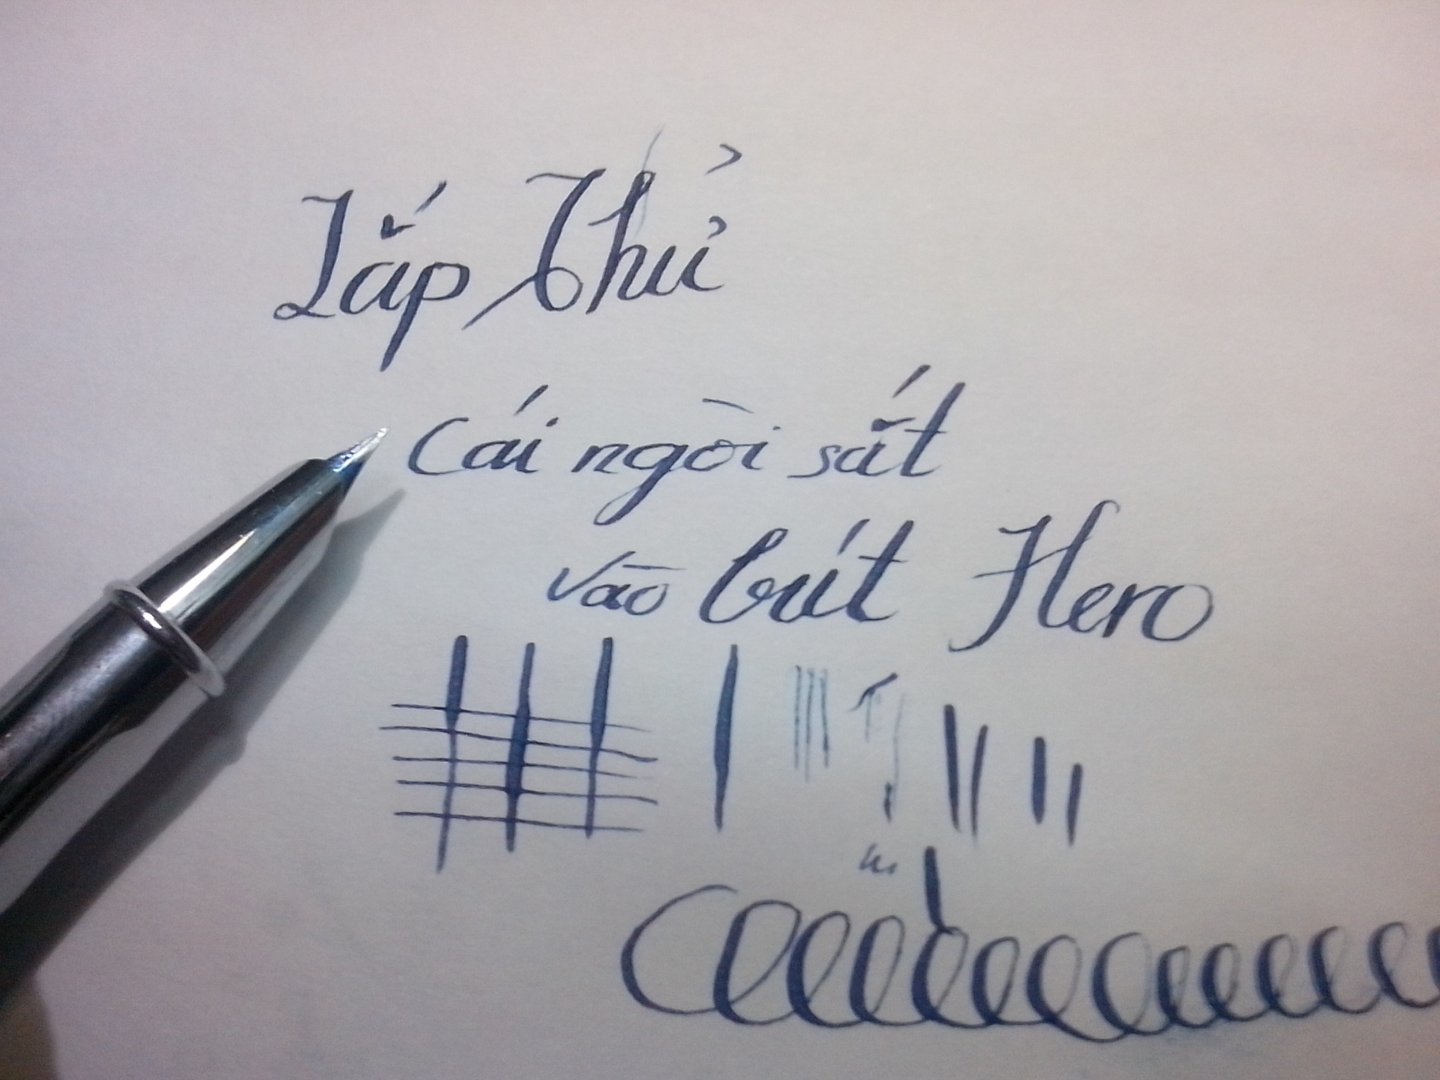 Lắp Thử
Cái ngòi sắt
vào bút Hero